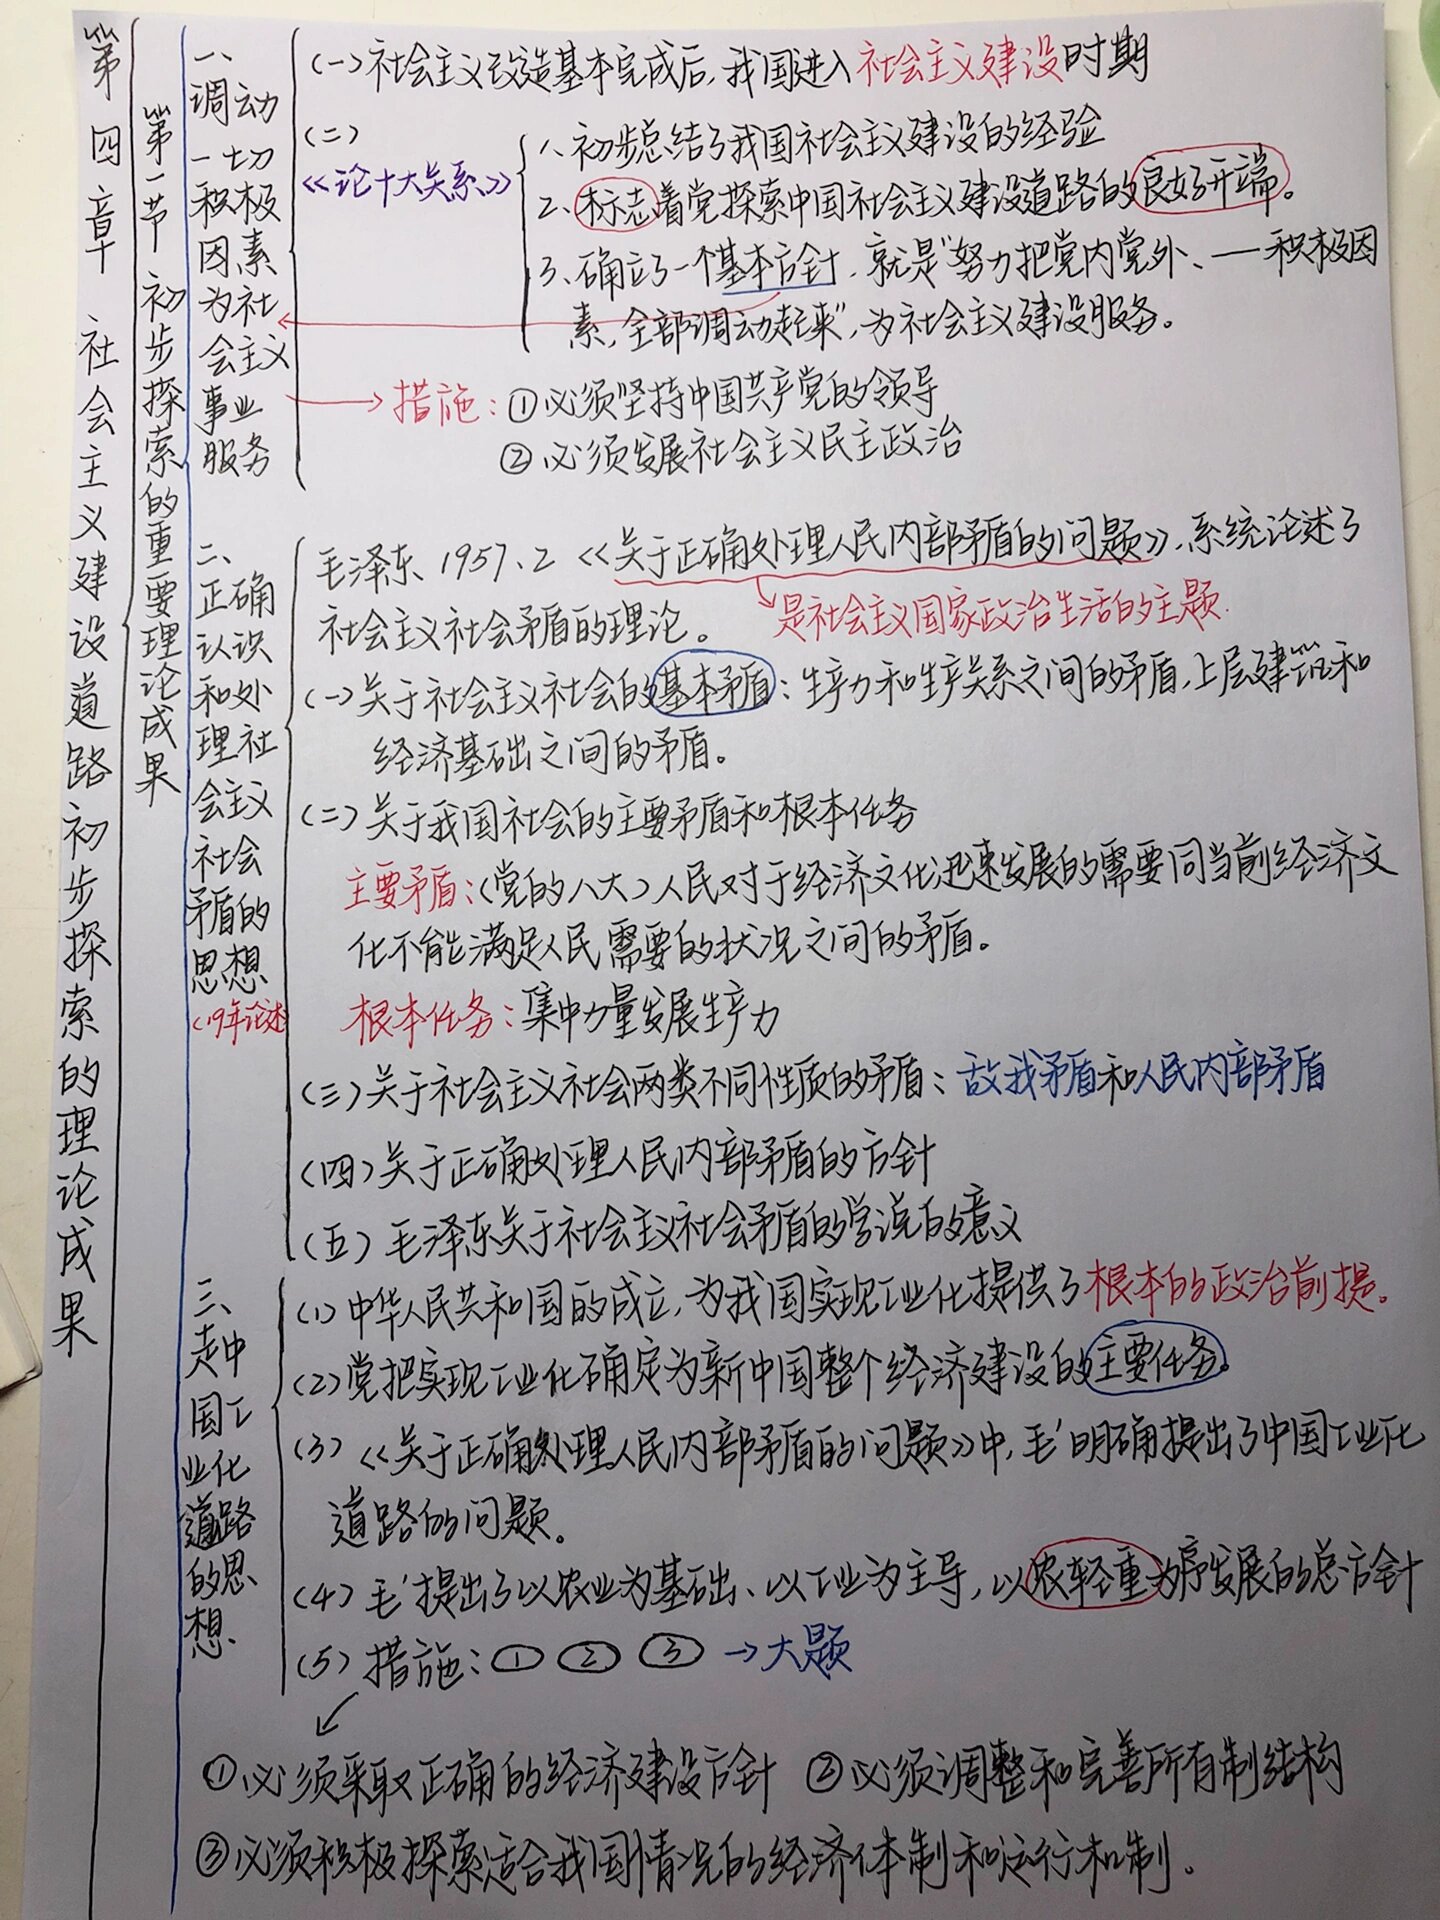 第四章 社会主义建设道路初步探索的理论成果
第一节 初步探索的重要理论成果
一、
调动
一切
积极
因素
为社
会主义
事业
服务
(一)社会主义改造基本完成后,我国进入社会主义建设时期
(二)
《论十大关系》
1、初步总结了我国社会主义建设的经验
2、标志着党探索中国社会主义建设道路的良好开端。
3、确立了一个基本方针,就是"努力把党内党外、一一积极因
素,全部调动起来",为社会主义建设服务。
措施:①必须坚持中国共产党的领导
②必须发展社会主义民主政治
二、
正确
认识
和处
理社
会主义
社会
矛盾的
思想
(19年论述
毛泽东、1957、2《关于正确处理人民内部矛盾的问题》,系统论述了
社会主义社会矛盾的理论。
是社会主义国家政治生活的主题.
(一)关于社会主义社会的基本矛盾:生产力和生产关系之间的矛盾,上层建筑和
经济基础之间的矛盾。
(二)关于我国社会的主要矛盾和根本任务
主要矛盾:(党的八大)人民对于经济文化迅速发展的需要同当前经济文
化不能满足人民需要的状况之间的矛盾。
根本任务:集中力量发展生产力
(三)关于社会主义社会两类不同性质的矛盾:敌我矛盾和人民内部矛盾
(四)关于正确处理人民内部矛盾的方针
(五)毛泽东关于社会主义社会矛盾的学说的意义
三、
走中
国工
业化
道路
的思
想
(1)中华人民共和国的成立,为我国实现工业化提供了根本的政治前提。
(2)党把实现工业化确定为新中国整个经济建设的主要任务。
(3)《关于正确处理人民内部矛盾的问题》中,毛'明确提出了中国工业化
道路的问题。
(4)毛'提出了以农业为基础、以工业为主导,以农轻重为序发展的总方针
(5)措施:① ② ③ →大题
①必须采取正确的经济建设方针 ②必须调整和完善所有制结构
③必须积极探索适合我国情况的经济体制和运行机制.